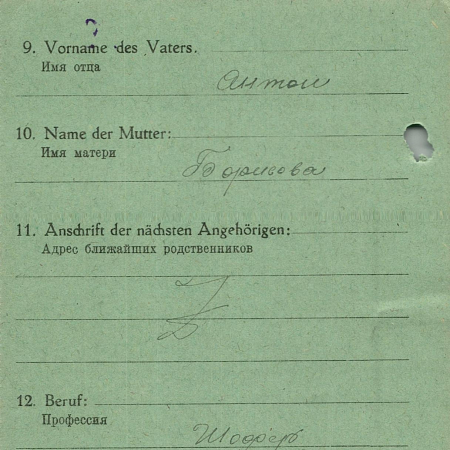 9. Vorname des Vaters.
Имя отца
Антон
10. Name der Mutter:
Имя матери
Борисова
11. Anschrift der nächsten Angehörigen:
Адрес ближайших родственников
12. Beruf:
Профессия
Шофер